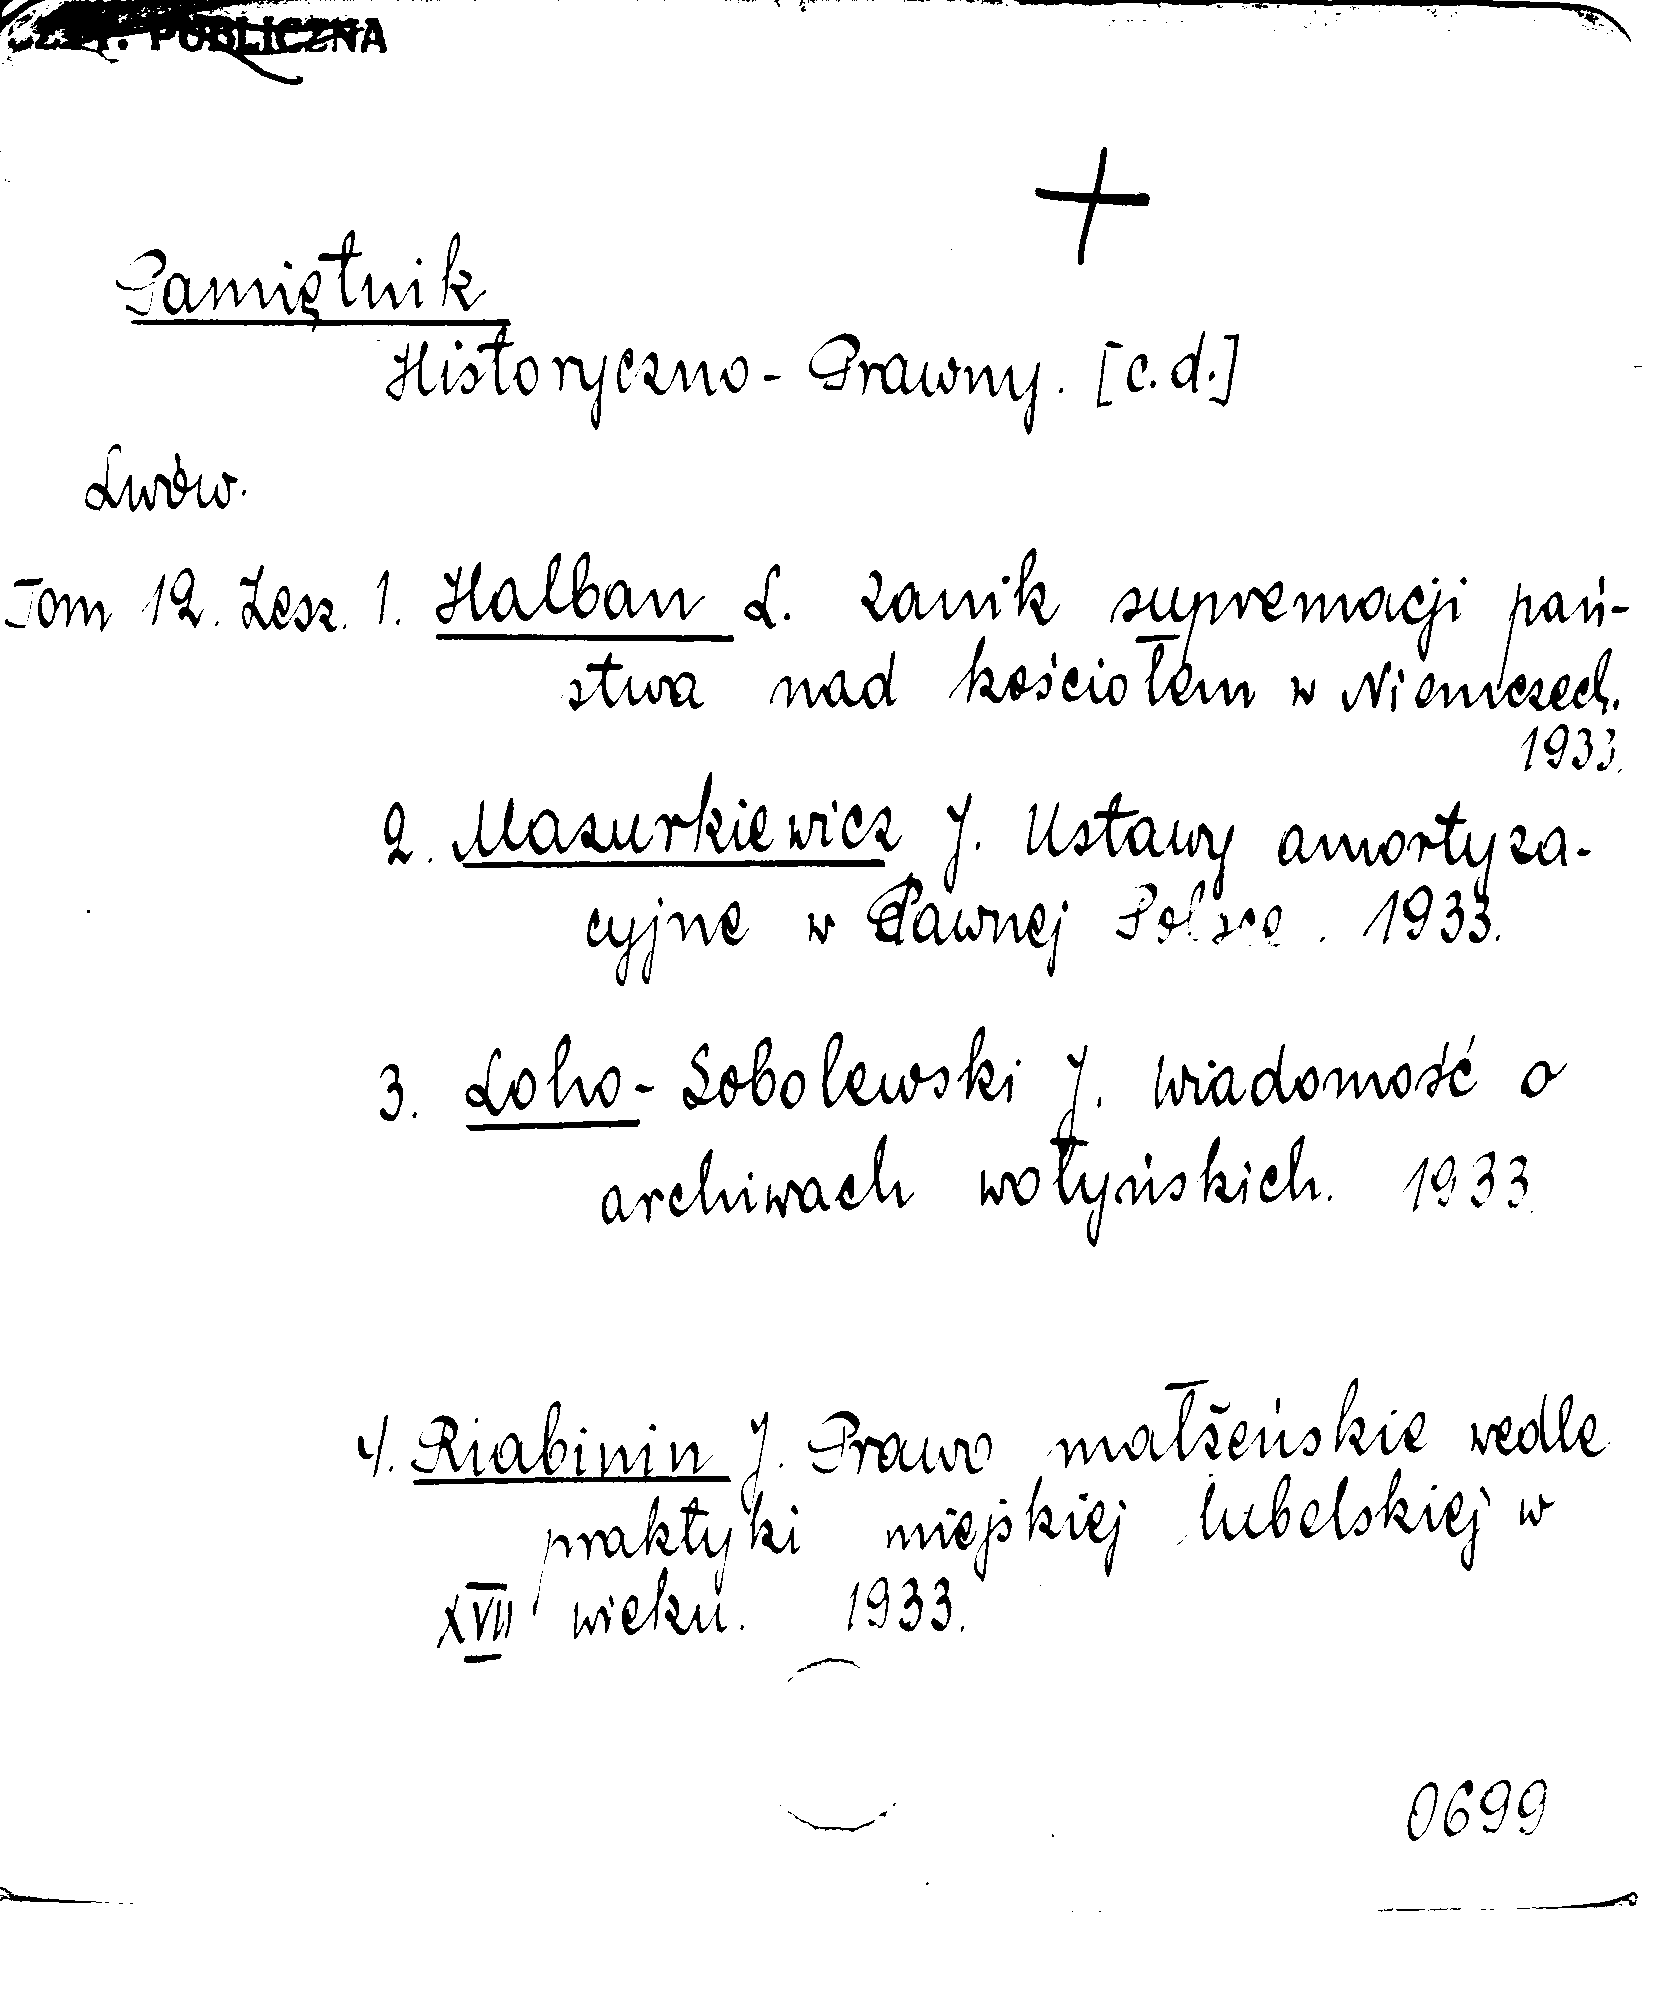 PUBLICZNA
Pamiętnik
Historyczno-Prawny. [c.d.]
Lwów.
Tom 12. Zesz. 1. Halban L. Zanik supremacji pań-
stwa nad kościołem w Niemczech.
1933.
2. Mazurkiewicz J. Ustawy amortyza-
cyjne w Dawnej Polsce. 1933.
3. Loho-Sobolewski J. Wiadomość o
archiwach wołyńskich. 1933.
4. Riabinin J. Prawo małżeńskie wedle
praktyki miejskiej lubelskiej w
XVII wieku. 1933.
0699